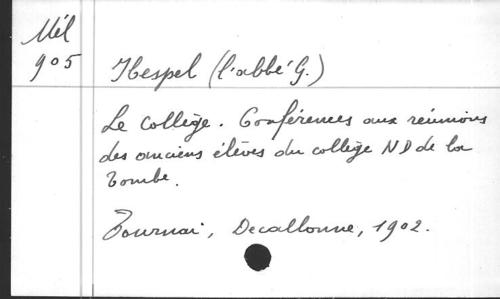 Mél
905
Hespel (l'abbé G.)
Le collège. Conférences aux réunions
des anciens élèves du collège ND de la
Tombe.
Tournai, Decallonne, 1902.